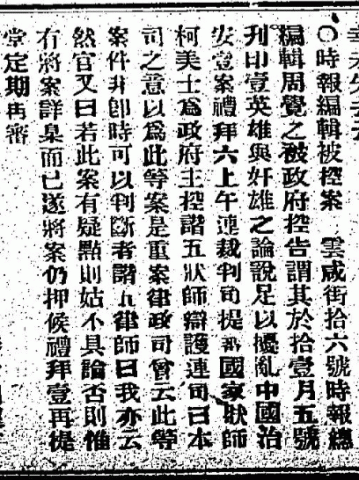 〇時報編輯被控案　雲咸街拾六號時報總
編輯周覺之被政府控告謂其於拾壹月五號
刊印壹英雄與奸雄之論說足以擾亂中國治
安壹案禮拜六上午連裁判司提訊國家狀師
柯美士爲政府主控諧五狀師辯護連司曰本
司之意以爲此等案是重案律政司曾云此等
案件非卽時可以判斷者諧五律師曰我亦云
然官又曰若此案有疑點則姑不具論否則惟
有將案詳臬而已遂將案仍押候禮拜壹再提
堂定期再審